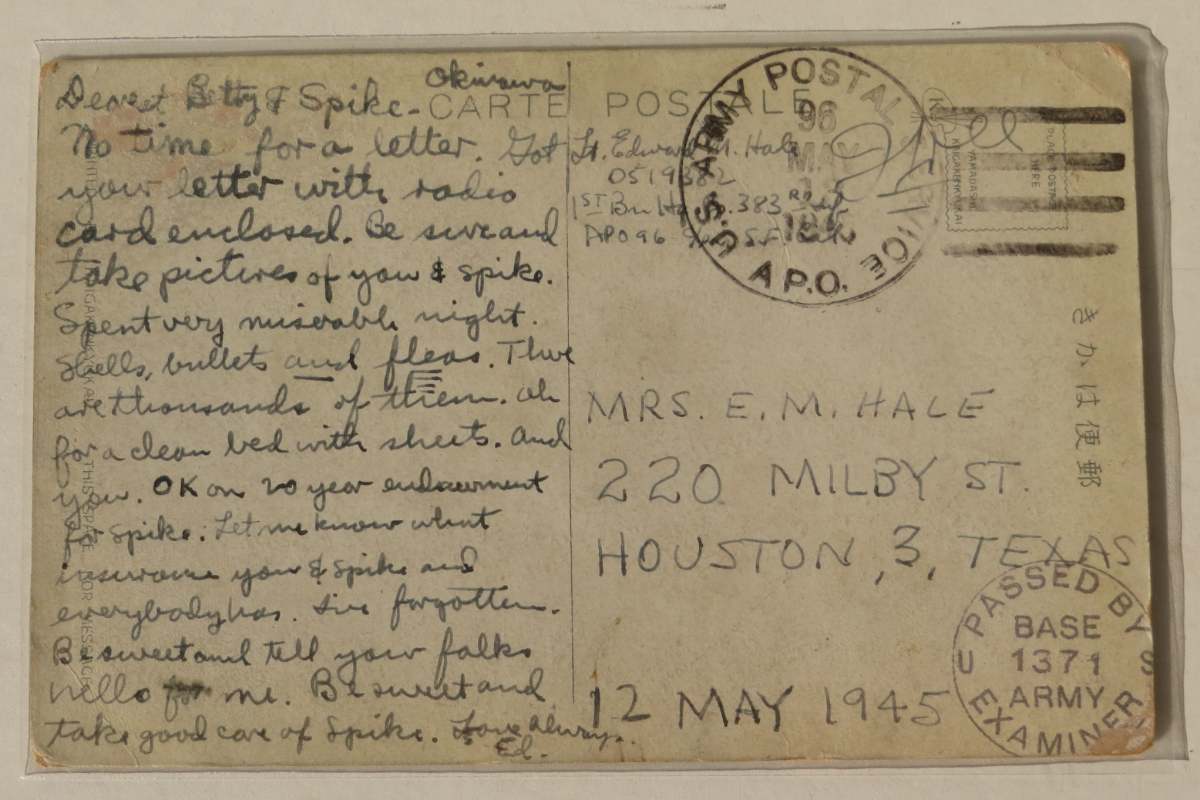 Okinawa
Dearest Betty & Spike-
No time for a letter. Got
your letter with radio
card enclosed. Be sure and
take pictures of you & Spike.
Spent very miserable night.
Shells, bullets and fleas. There
are thousands of them. Oh
for a clean bed with sheets. And
you. OK on 20 year endowment
for Spike. Let me know what
insurance you & Spike and
everybody has. I've forgotten.
Be sweet and tell your folks
hello for me. Be sweet and
take good care of Spike. Love always.
Ed.
CARTE POSTALE
Lt. Edward M. Hale
0519382
1ST Bn Hq Co. 383rd Inf
APO 96
U.S. ARMY POSTAL SERVICE
96
MAY
A.P.O.
PLACE POSTAGE
HERE
YAMADASHI
きかは便郵
MRS. E. M. HALE
220 MILBY ST.
HOUSTON, 3, TEXAS
12 MAY 1945
PASSED BY
BASE
U 1371 S
ARMY
EXAMINER
THIS SPACE FOR MESSAGE